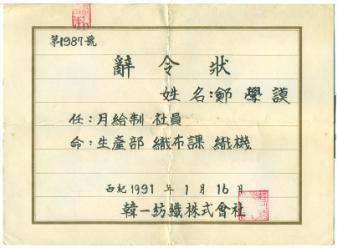 第1987號
辭令狀
姓名:鄭 學謨
任:月給制 社員
命:生產部 織布課 織機
西紀 1991 年 1 月 16 日
韓一紡織株式會社